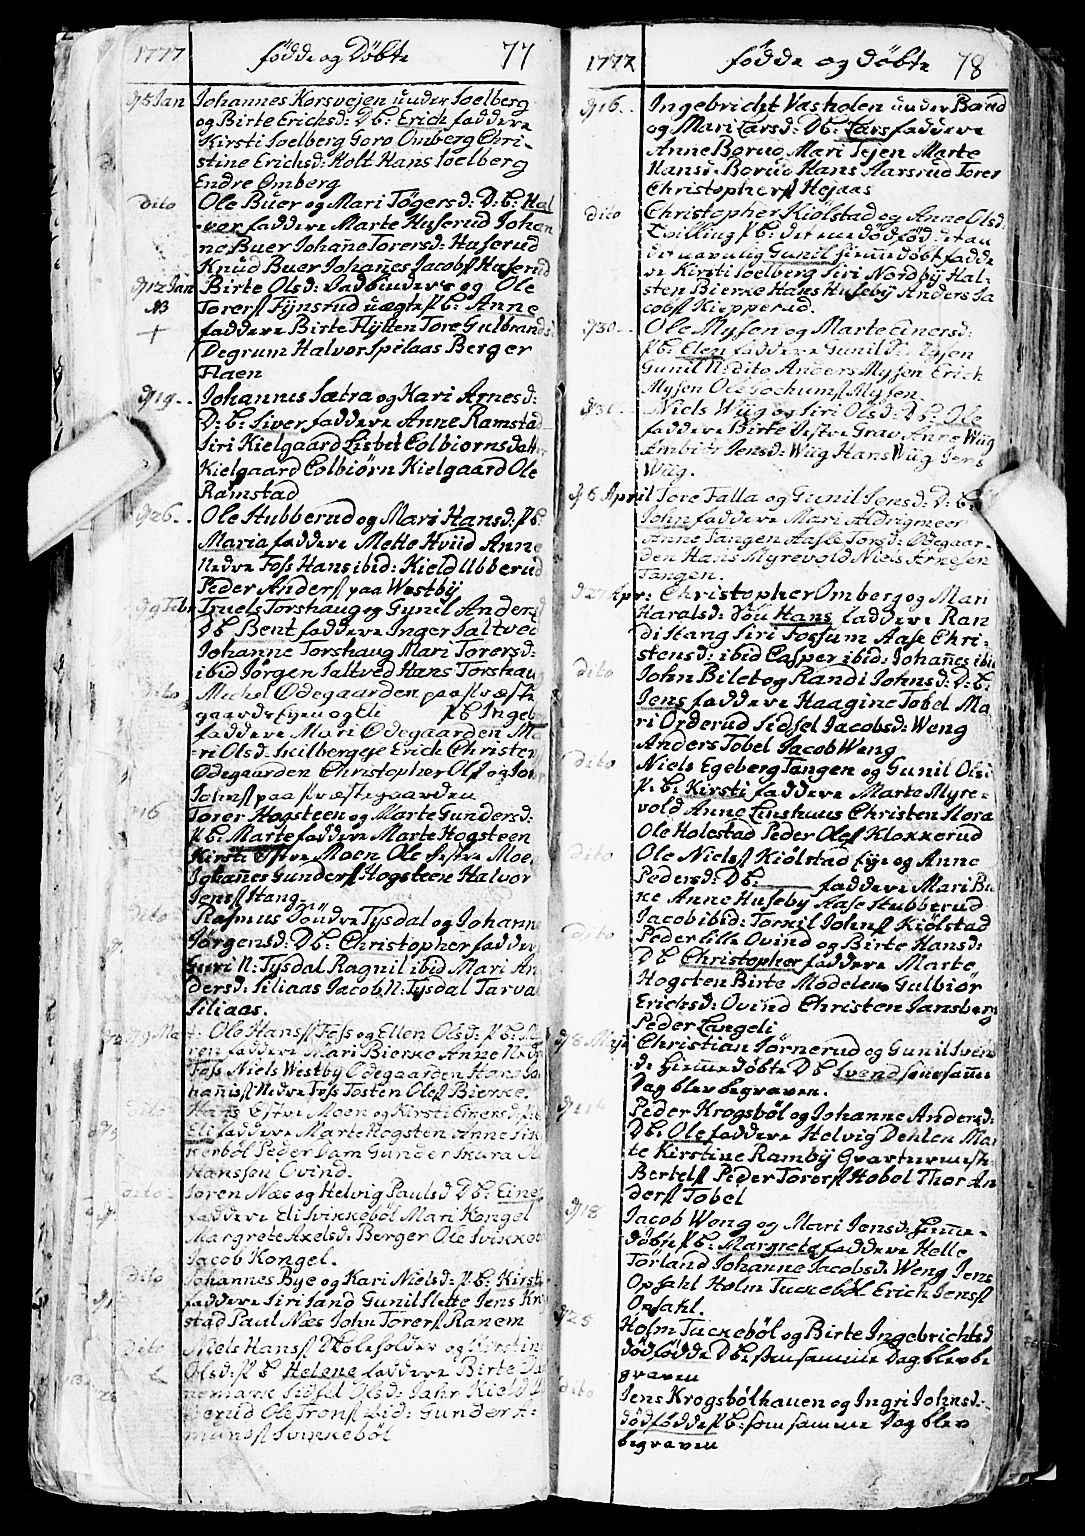 1777 födde og Döbte 77
d 5 Jan Johannes Korsvejen under Soelberg
og Birte Erichsd: Db: Erich faddere
Kirsti Soelberg Goro Omberg Chri-
stine Erichsd: Holt Hans Soelberg
Endre Omberg
dito Ole Buer og Mari Tögersd: D:b: Hal
ver faddere Marte Huserud Johan
ne Buer Johañe Torersd: Huserud
Knud Buer Johañes Jacobs Huserud
d 12 Jan Birte Olsd: og Ole
NB Torers Fijnsrud uægte p:b: Anne
faddere Birte Flÿtten Tore Gulbrands
Degrum Halvor Spilaas Berger
Flaen
d 19 Johannes Sætra og Kari Arnesd:
D:b: Siver faddere Anne Ramstad
Siri Kielgaard Lisbet Colbiornsdatter
Kielgaard Colbiörn Kielgaard Ole
Ramstad
d 26 Ole Stubberud og Mari Hansd: p b:
Maria faddere Mette Hviid Anne
Nedre Foss Hans ibid: Kield Ubberud
Peder Anders paa Westbÿ
d 9 Febr Truels Torshaug og Gunil Andersd
Db Bent faddere Inger Saltved
Johanne Torshaug Mari Torersd:
ibid Jörgen Saltved Hans Torshaug
dito Michel Ödegaarden paa Præste
gaards Ejen og Eli p b Ingeb
faddere Mari Ödegaarden Ma
ri Olsd: Skilbergeje Erich Christen
Ödegaarden Christopher Ols og Jon
Johns paa Præstegaarden
d 16 Torer Hogsteen og Marte Gundersd:
p b: Marte faddere Marte Hogsteen
Kirsti Estre Moen Ole Estre Moe
Johañes Gunders Hogsteen Halvor
Jens Stang
dito Rasmus Söndre Tysdal og Johann
Jörgensd: Db: Christopher fadder
Guri N: Tysdal Ragnil ibid Mari An
dersd: Siliaas Jacob N: Tysdal Tarval
Siliaas.
d 9 Ma Ole Hans Foss og Ellen Olsd: p b: Sö
ren faddere Mari Bierke Anne Nedr
Foss Niels Westby Ödegaarden Hans Jo
hañis Nedre Foss Tosten Oles Bierke
dito Hans Estre Moen og Kirsti Einersd: p b
Eli faddere Marte Hogsten Anne Svik
kerböl Peder Dam Gunder Skara Ol
Hanssön Övind.
dito Soren Næs og Helvig Paulsd Db: Einer
faddere Eli Svikkeböl Mari Kongel
Margrete Axelsd: Berger Ole Svikkeb
Jacob Kongel.
dito Johannes Bye og Kari Nielsd: p b: Kirsti
faddere Siri Sand Gunil Slette Jens Kro
stad Paul Næs John Torers Ranem
dito Niels Hans Skoleholder og Kirstin
Olsd: p b Helene faddere Birte Da
nemark Sidsel Olsd: Jahr Kield
Ole Trons ibid: Gunder A-
munds Svikkeböl
1777 födde og döbte 78
d 16 Ingebricht Vasholen under Bærud
og Mari Larsd: Db: Lars faddere
Anne Borud Mari Tejen Marte
Hansd: Borud Hans Aarsrud Torer
Christophers Hejaas
dito Christopher Kiölstad og Anne Olsd.
Tvilling p b: det ene dödföd
Gunil hiemedöbt fadde
re Kirsti Soelberg Siri Nordbÿ Hal-
sten Bierke Hans Husebÿ Anders Ja
cobs Kiepperud.
d 30 Ole Mysen og Marte Einersd:
p b: Elen faddere Gunil d: Mysen
Gunil N: dito Anders Mysen Erich
Mysen Ole Jochums Mysen
d 31 Niels Wiig og Siri Olsd: D b: Ole
faddere Birte Vestre Grav Anne Wiig
Jensd: Wiig Hans Wiig Jens
Wiig.
d 6 April Tore Falla og Gunil Jensd: D:b:
John faddere Mari Aldrigmeer
Anne Tangen Aasle Torsd: Ödegaar-
den Hans Myrevold Niels Arnesen
Tangen.
d 27 Apr: Christopher Omberg og Mari
Haralsd: Söñ Hans faddere Ran
di Stang Siri Fossum Aase Chri-
stensd: ibid Casper ibid: Johañes ibid
dito John Bilet og Randi Johnsd: D:b:
Jens faddere Haagine Tobel Ma
ri Orderud Sidsel Jacobsd: Weng
Anders Tobel Jacob Weng
dito Niels Egeberg Tangen og Gunil Olsd
p: b: Kirsti faddere Marte Myre-
vold Anne Linshuus Christen Nora
Ole Holestad Peder Oles Klokkerud
dito Ole Niels Kiölstad Eje og Anne
Pedersd: Db: faddere Mari Bu
Anne Huseby Aase Stubberud
Jacob ibid: Torkil Johns Kiölstad
dito Peder Lille Övind og Birte Hansd:
Db Christopher faddere Marte
Hogsten Birte Modelen Gulbiör
Erichsd: Övind Christen Jansberg
Peder Langeli
d 8 Maji Christian Sörnerud og Gunil Svend
d: hiemedöbte Db Svend som samme
Dag blev begraven.
Peder Krogsböl og Johanne Andersd:
Db: Ole faddere Helvig Dehlen Mar
te Kirstine Rambÿ Qvarteermest
Bertels Peder Torers Hobel Thor An
ders Tobel
d 18 Jacob Weng og Mari Jensd: hieme-
döbte p b: Margrete faddere Helle
Törland Johanne Jacobsd: Weng Jens
Opsahl Holm Tuckeböl Erich Jens
Opsahl.
d 25 Holm Tuckeböl og Birte Ingebrichtsd
dödfödde Db: som samme Dag blev be
graven
dito Jens Krogsbölhauen og Ingri Johnsd:
dödfödde p b: som samme Dag blev
begraven